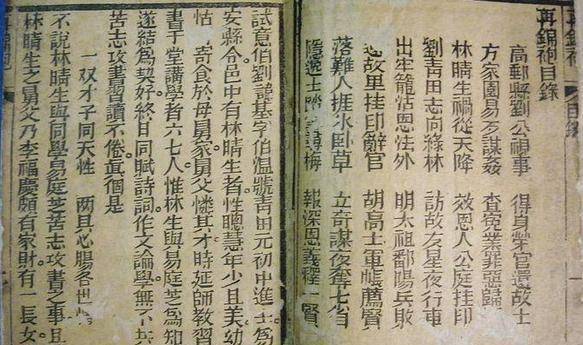 再錦袍 目錄
再錦袍目錄
高郵縣劉公視事 得貝榮官還故士
方家園易歹謀姦 查寃業罪惡歸
林晴生禍從天降 效恩人公庭挂印
劉青田志向綠林 訪故友星夜行車
出生籠怙恩性外 明太祖鄱陽兵敗
故里挂印辭官 胡高士軍帳薦賢
落難人捱氷卧草 立奇謀夜奪七省
隱遯士踏 尋梅 報深恩義釋 賢
試意伯劉諱基字伯溫號青田元初中進士爲
安縣令邑中有林晴生者性聰慧年少且美幼
怙 寄食於母舅家舅父憐其才時延師教習
書于堂講學者六七人惟林生與易庭芝爲知
遂結爲契好終日同賦詩詞作文論學無不共
苦志攻書習讀不倦眞個是
一双才子同天性 两具心腸各世
不說林晴生與同學易庭芝苦志攻書之事且
林晴生之舅父乃李福慶頗有家財有一長女
再錦袍